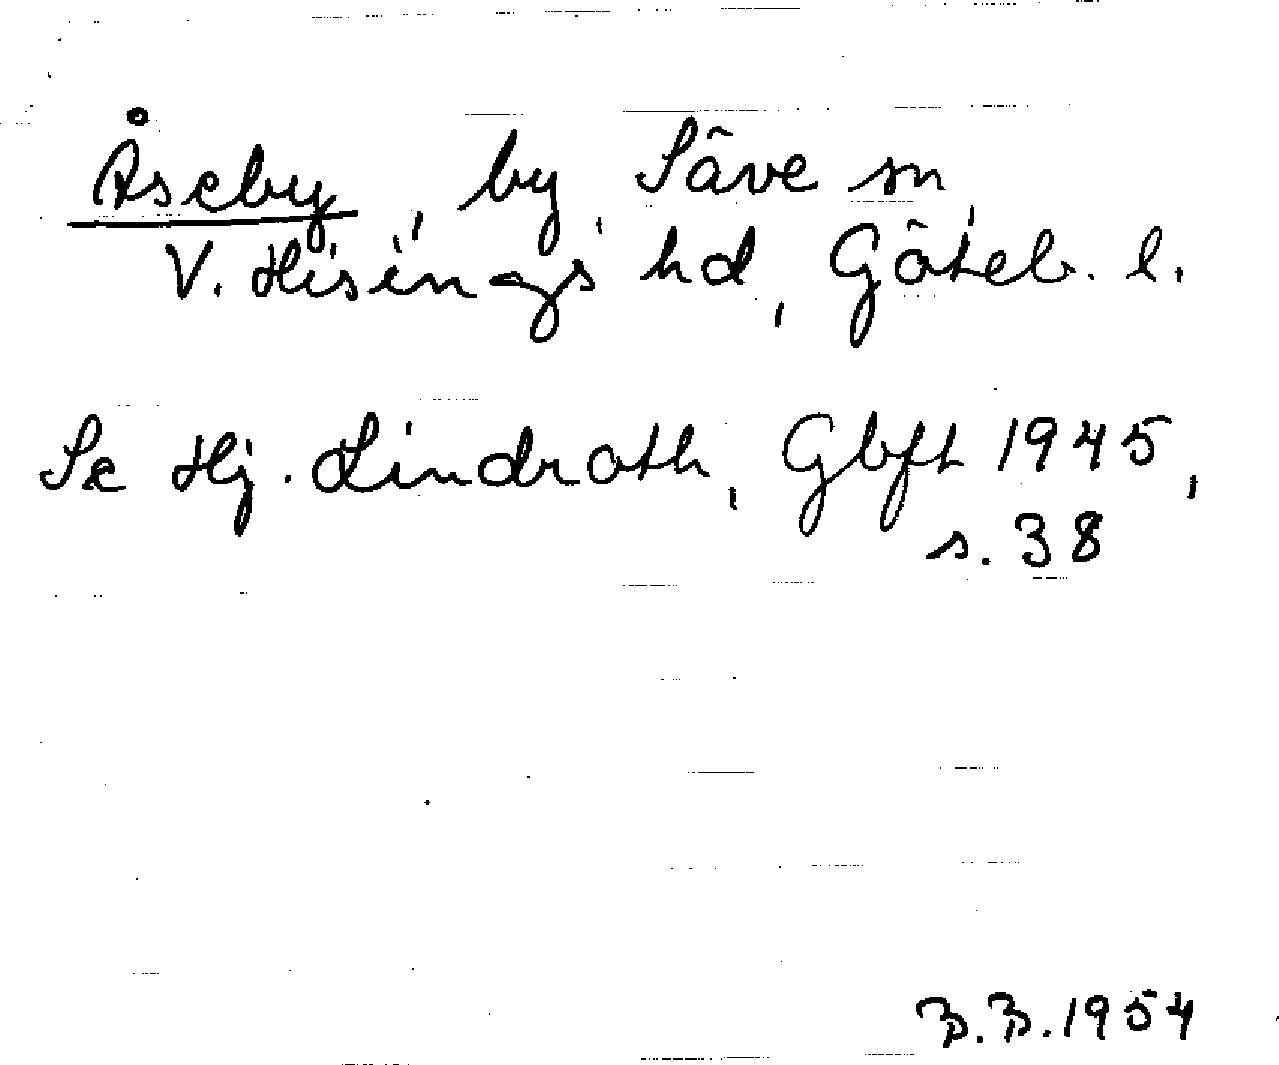 Åseby, by, Säve sn,
V. Hisings hd, Göteb. l.
Se Hj. Lindroth, Gbft 1945,
s. 38
B.B. 1954